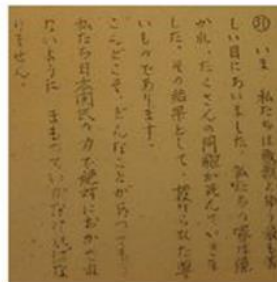 ㉛ いま 私たちは
しい目にあいました。私たちの家は焼
かれ、たくさんの同胞が死んでいきま
した。その結果として、授けられた尊
いものであります。
こんどこそ、どんなことがあっても、
私たち日本国民の力で絶対におかされ
ないように まもっていかなければな
りません。